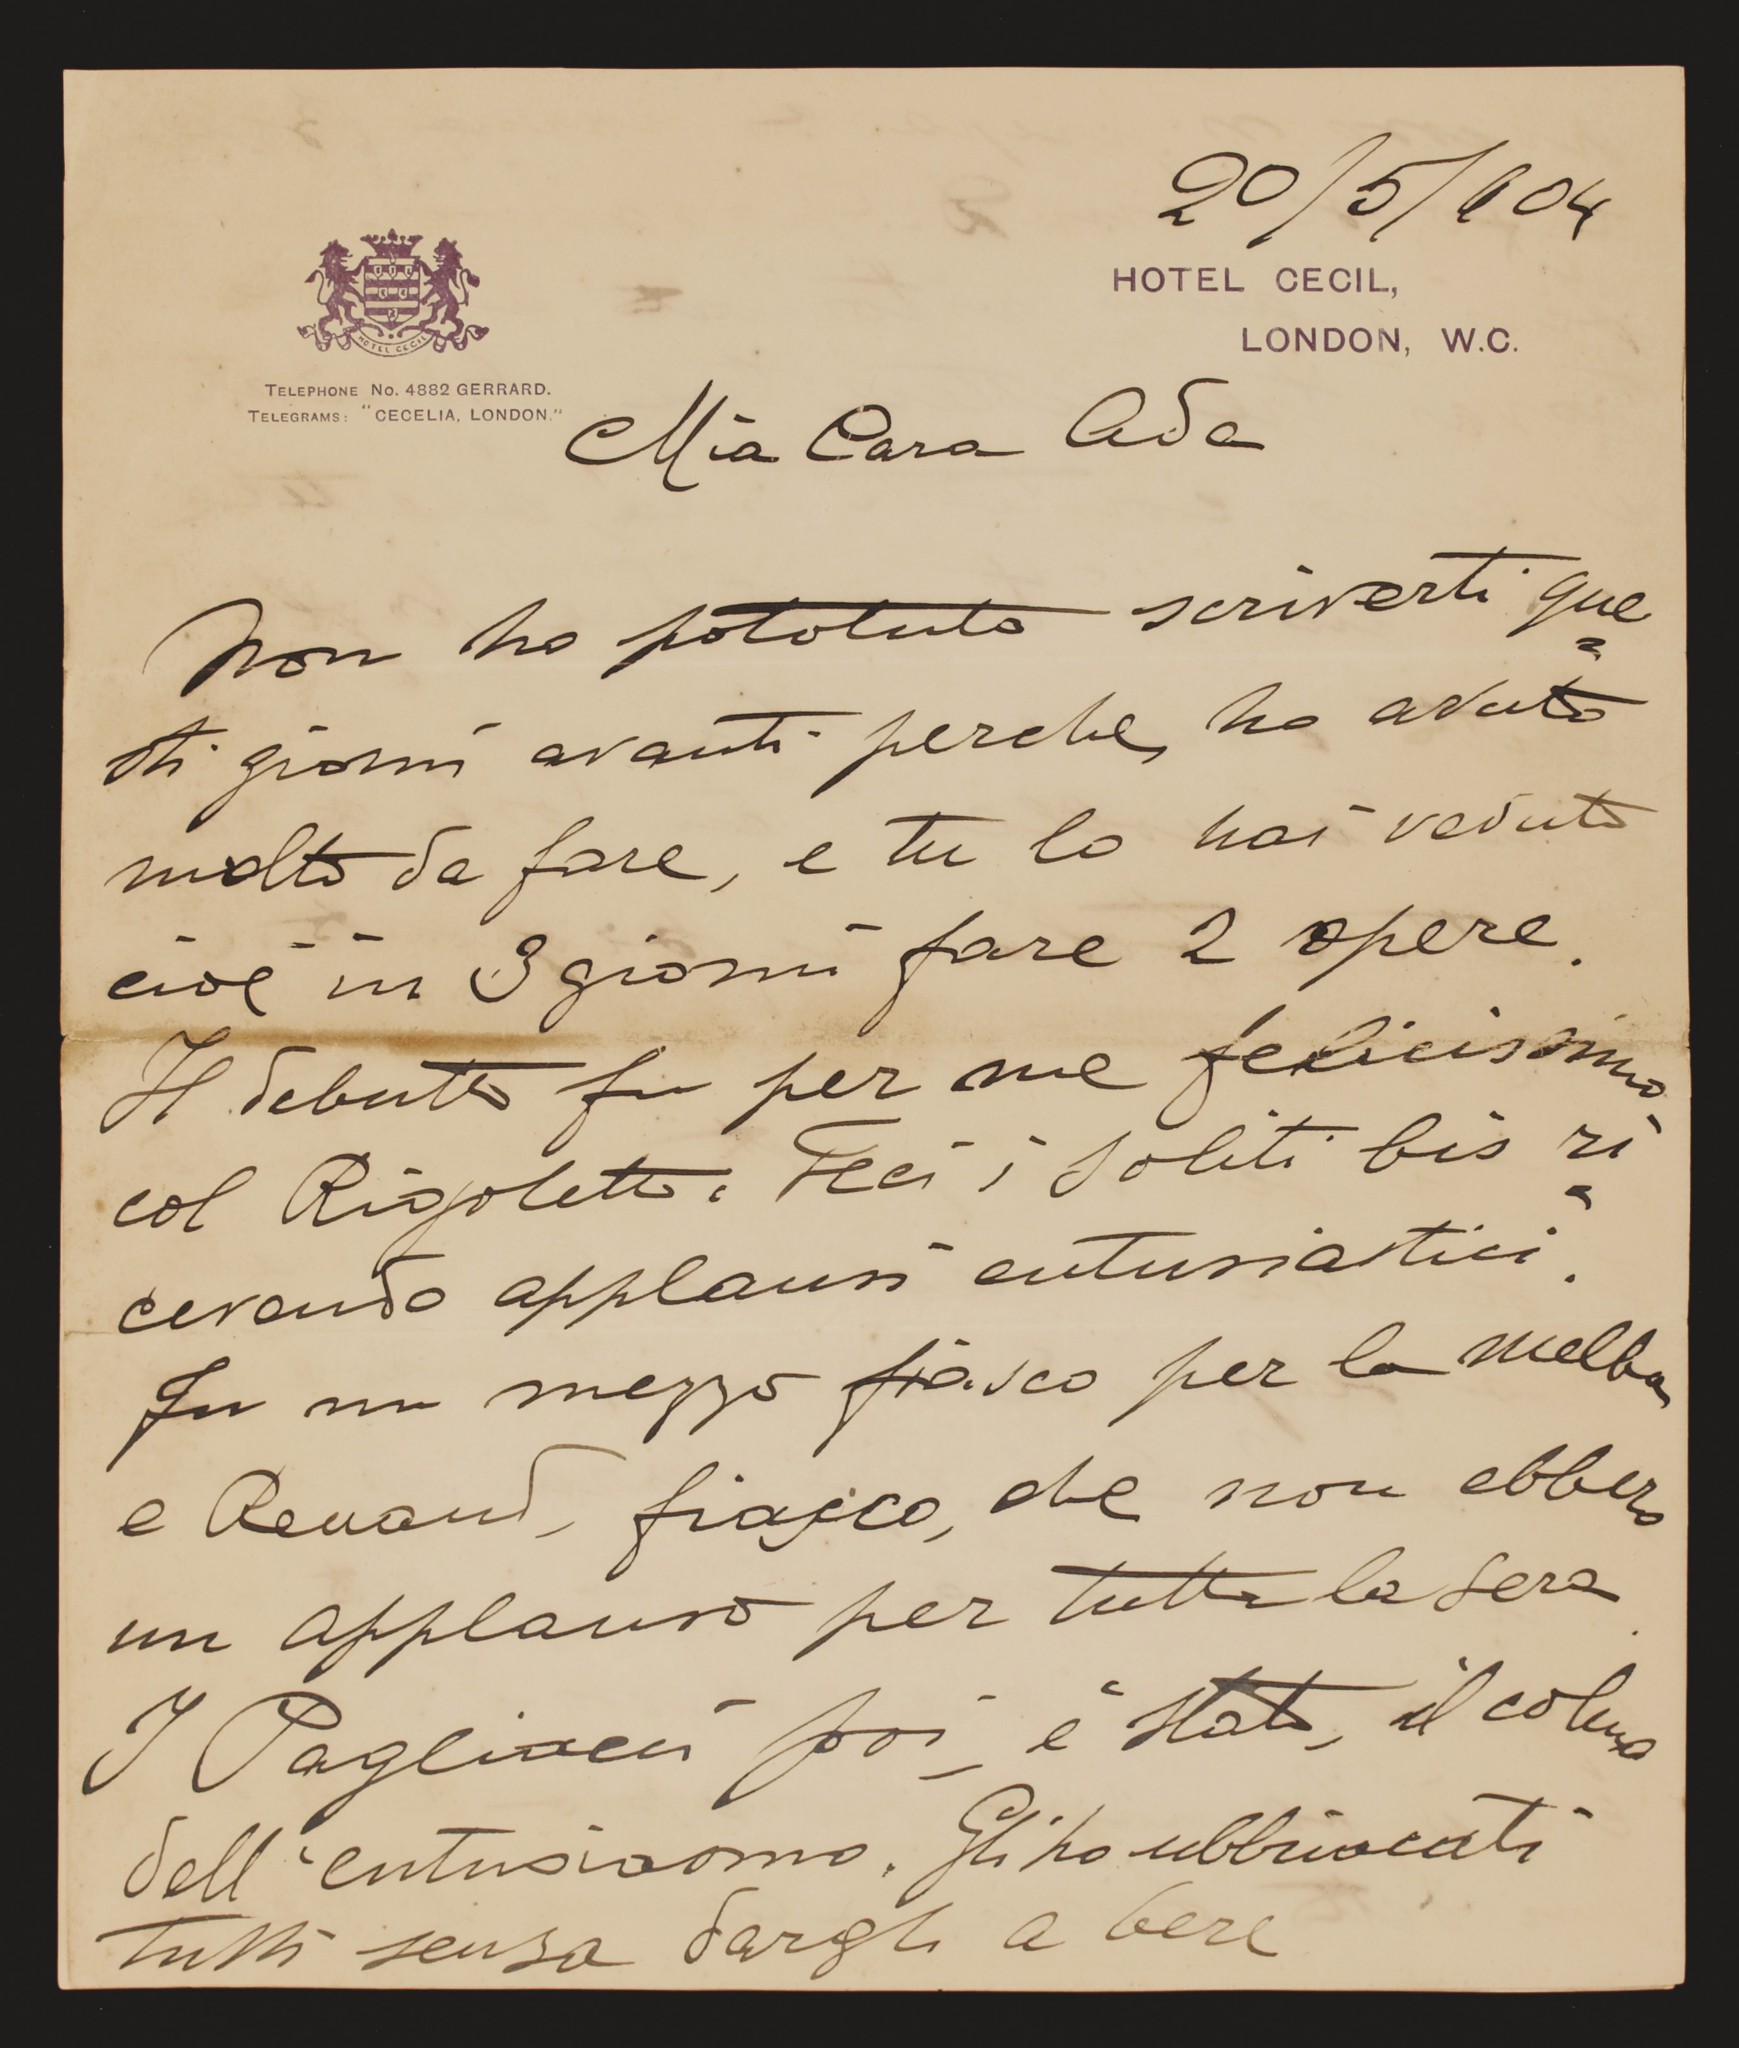 20/5/904
HOTEL CECIL,
LONDON, W.C.
HOTEL CECIL
TELEPHONE No. 4882 GERRARD.
TELEGRAMS: "CECELIA, LONDON."
Mia Cara Ada
Non ho pototuto scriverti que=
sti giorni avanti perche, ho avuto
molto da fare, e tu lo hai veduto
cioè in 3 giorni fare 2 opere.
Il debutto fu per me felicissimo
col Rigoletto. Feci i soliti bis ri=
cevendo applausi entusiastici.
Fu un mezzo fiasco per la Melba
e Renaud, fiasco, che non ebbero
un applauso per tutta la sera.
I Pagliacci poi, è stato, il colmo
dell'entusiasmo. Gli ho ubbriacati
tutti senza dargli a bere